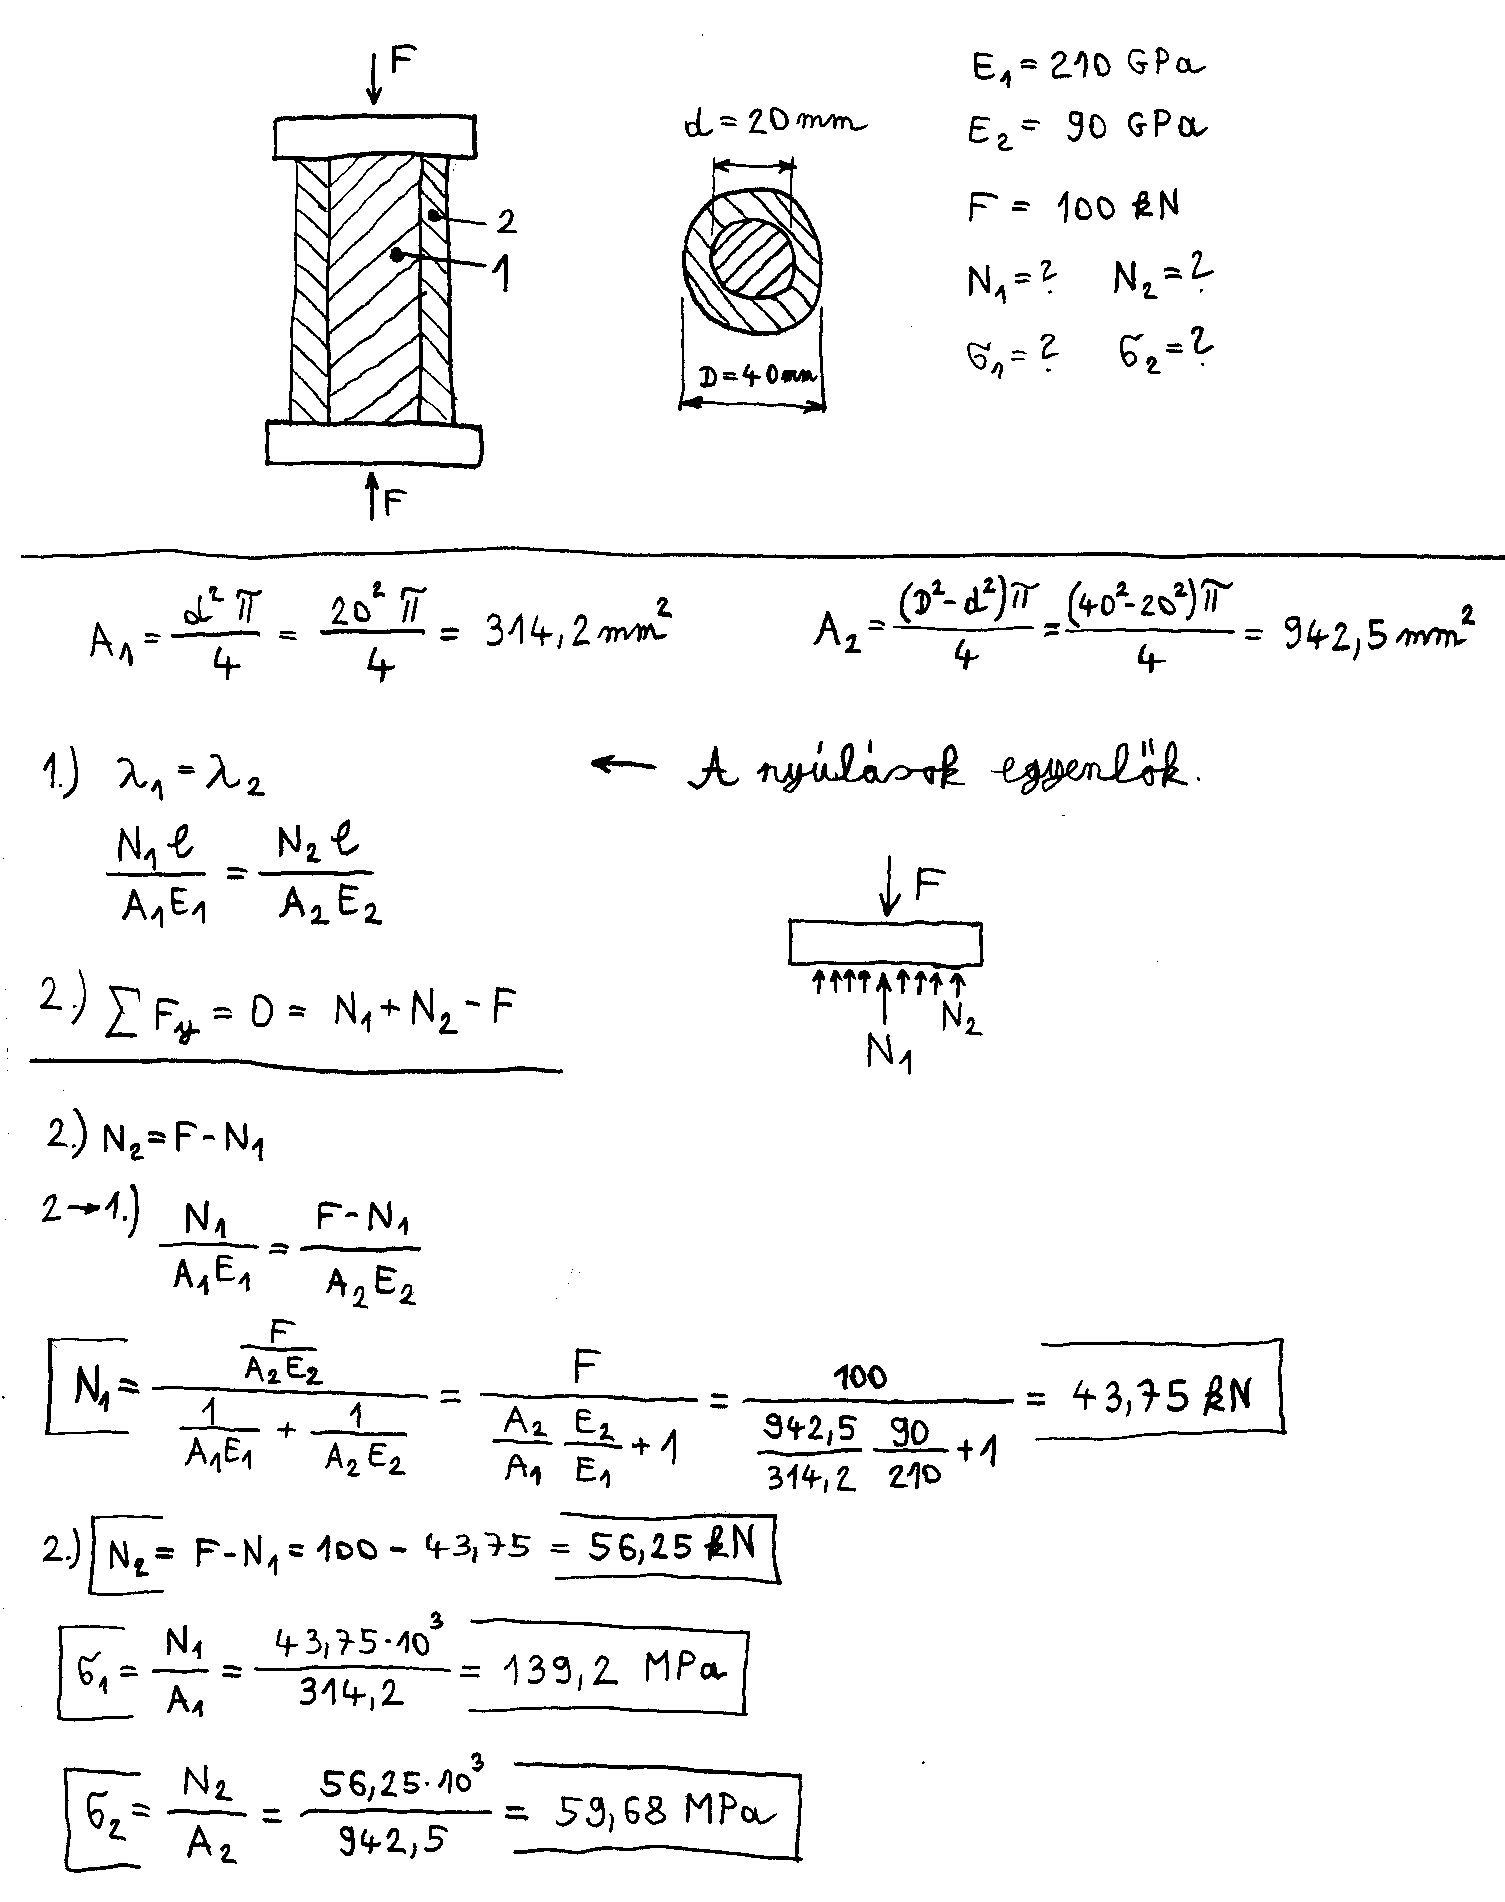 F
E₁ = 210 GPa
d = 20 mm
E₂ = 90 GPa
F = 100 kN
2
1
N₁ = ? N₂ = ?
σ₁ = ? σ₂ = ?
D = 40 mm
F
A₁ = d²π/4 = 20²π/4 = 314,2 mm² A₂ = (D²-d²)π/4 = (40²-20²)π/4 = 942,5 mm²
1.) λ₁ = λ₂ ← A nyúlások egyenlők.
N₁ℓ/A₁E₁ = N₂ℓ/A₂E₂
F
2.) ∑ Fy = 0 = N₁ + N₂ - F
N₂
N₁
2.) N₂ = F - N₁
2→1.) N₁/A₁E₁ = (F-N₁)/A₂E₂
N₁ = (F/A₂E₂)/(1/A₁E₁ + 1/A₂E₂) = F/(A₂/A₁ E₂/E₁ + 1) = 100/(942,5/314,2 90/210 + 1) = 43,75 kN
2.) N₂ = F - N₁ = 100 - 43,75 = 56,25 kN
σ₁ = N₁/A₁ = 43,75·10³/314,2 = 139,2 MPa
σ₂ = N₂/A₂ = 56,25·10³/942,5 = 59,68 MPa